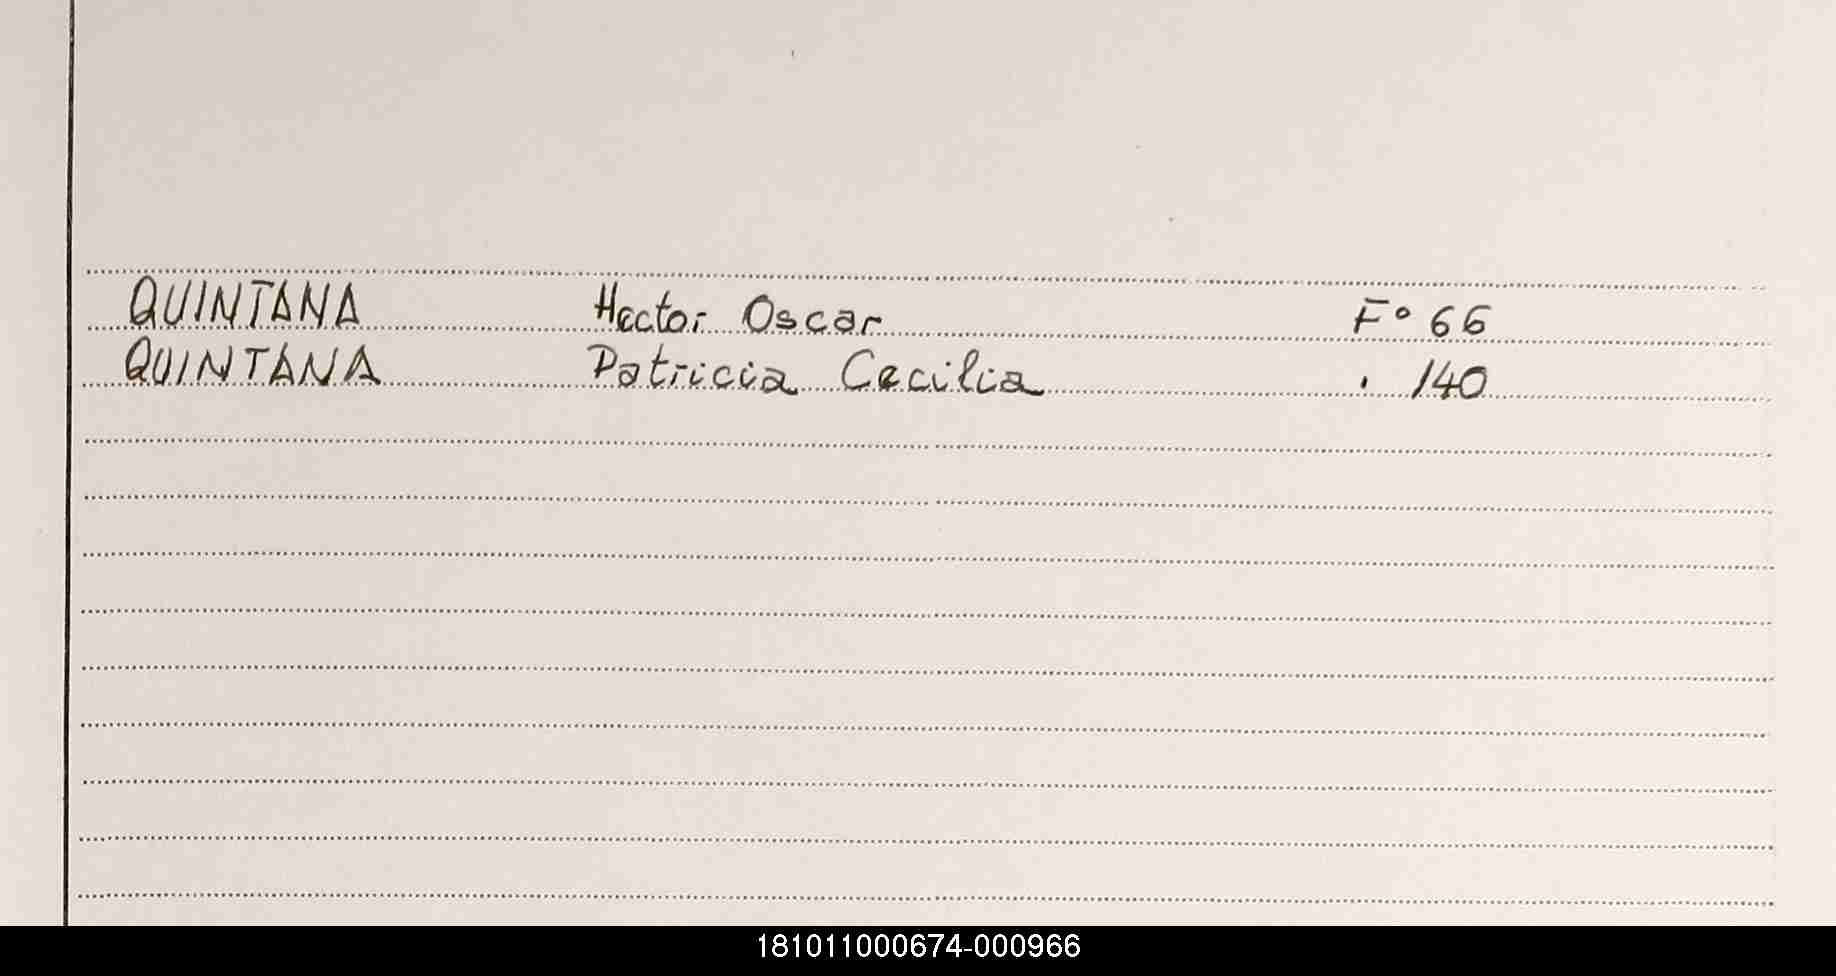 QUINTANA Hector Oscar Fº 66
QUINTANA Patricia Cecilia . 140
181011000674-000966